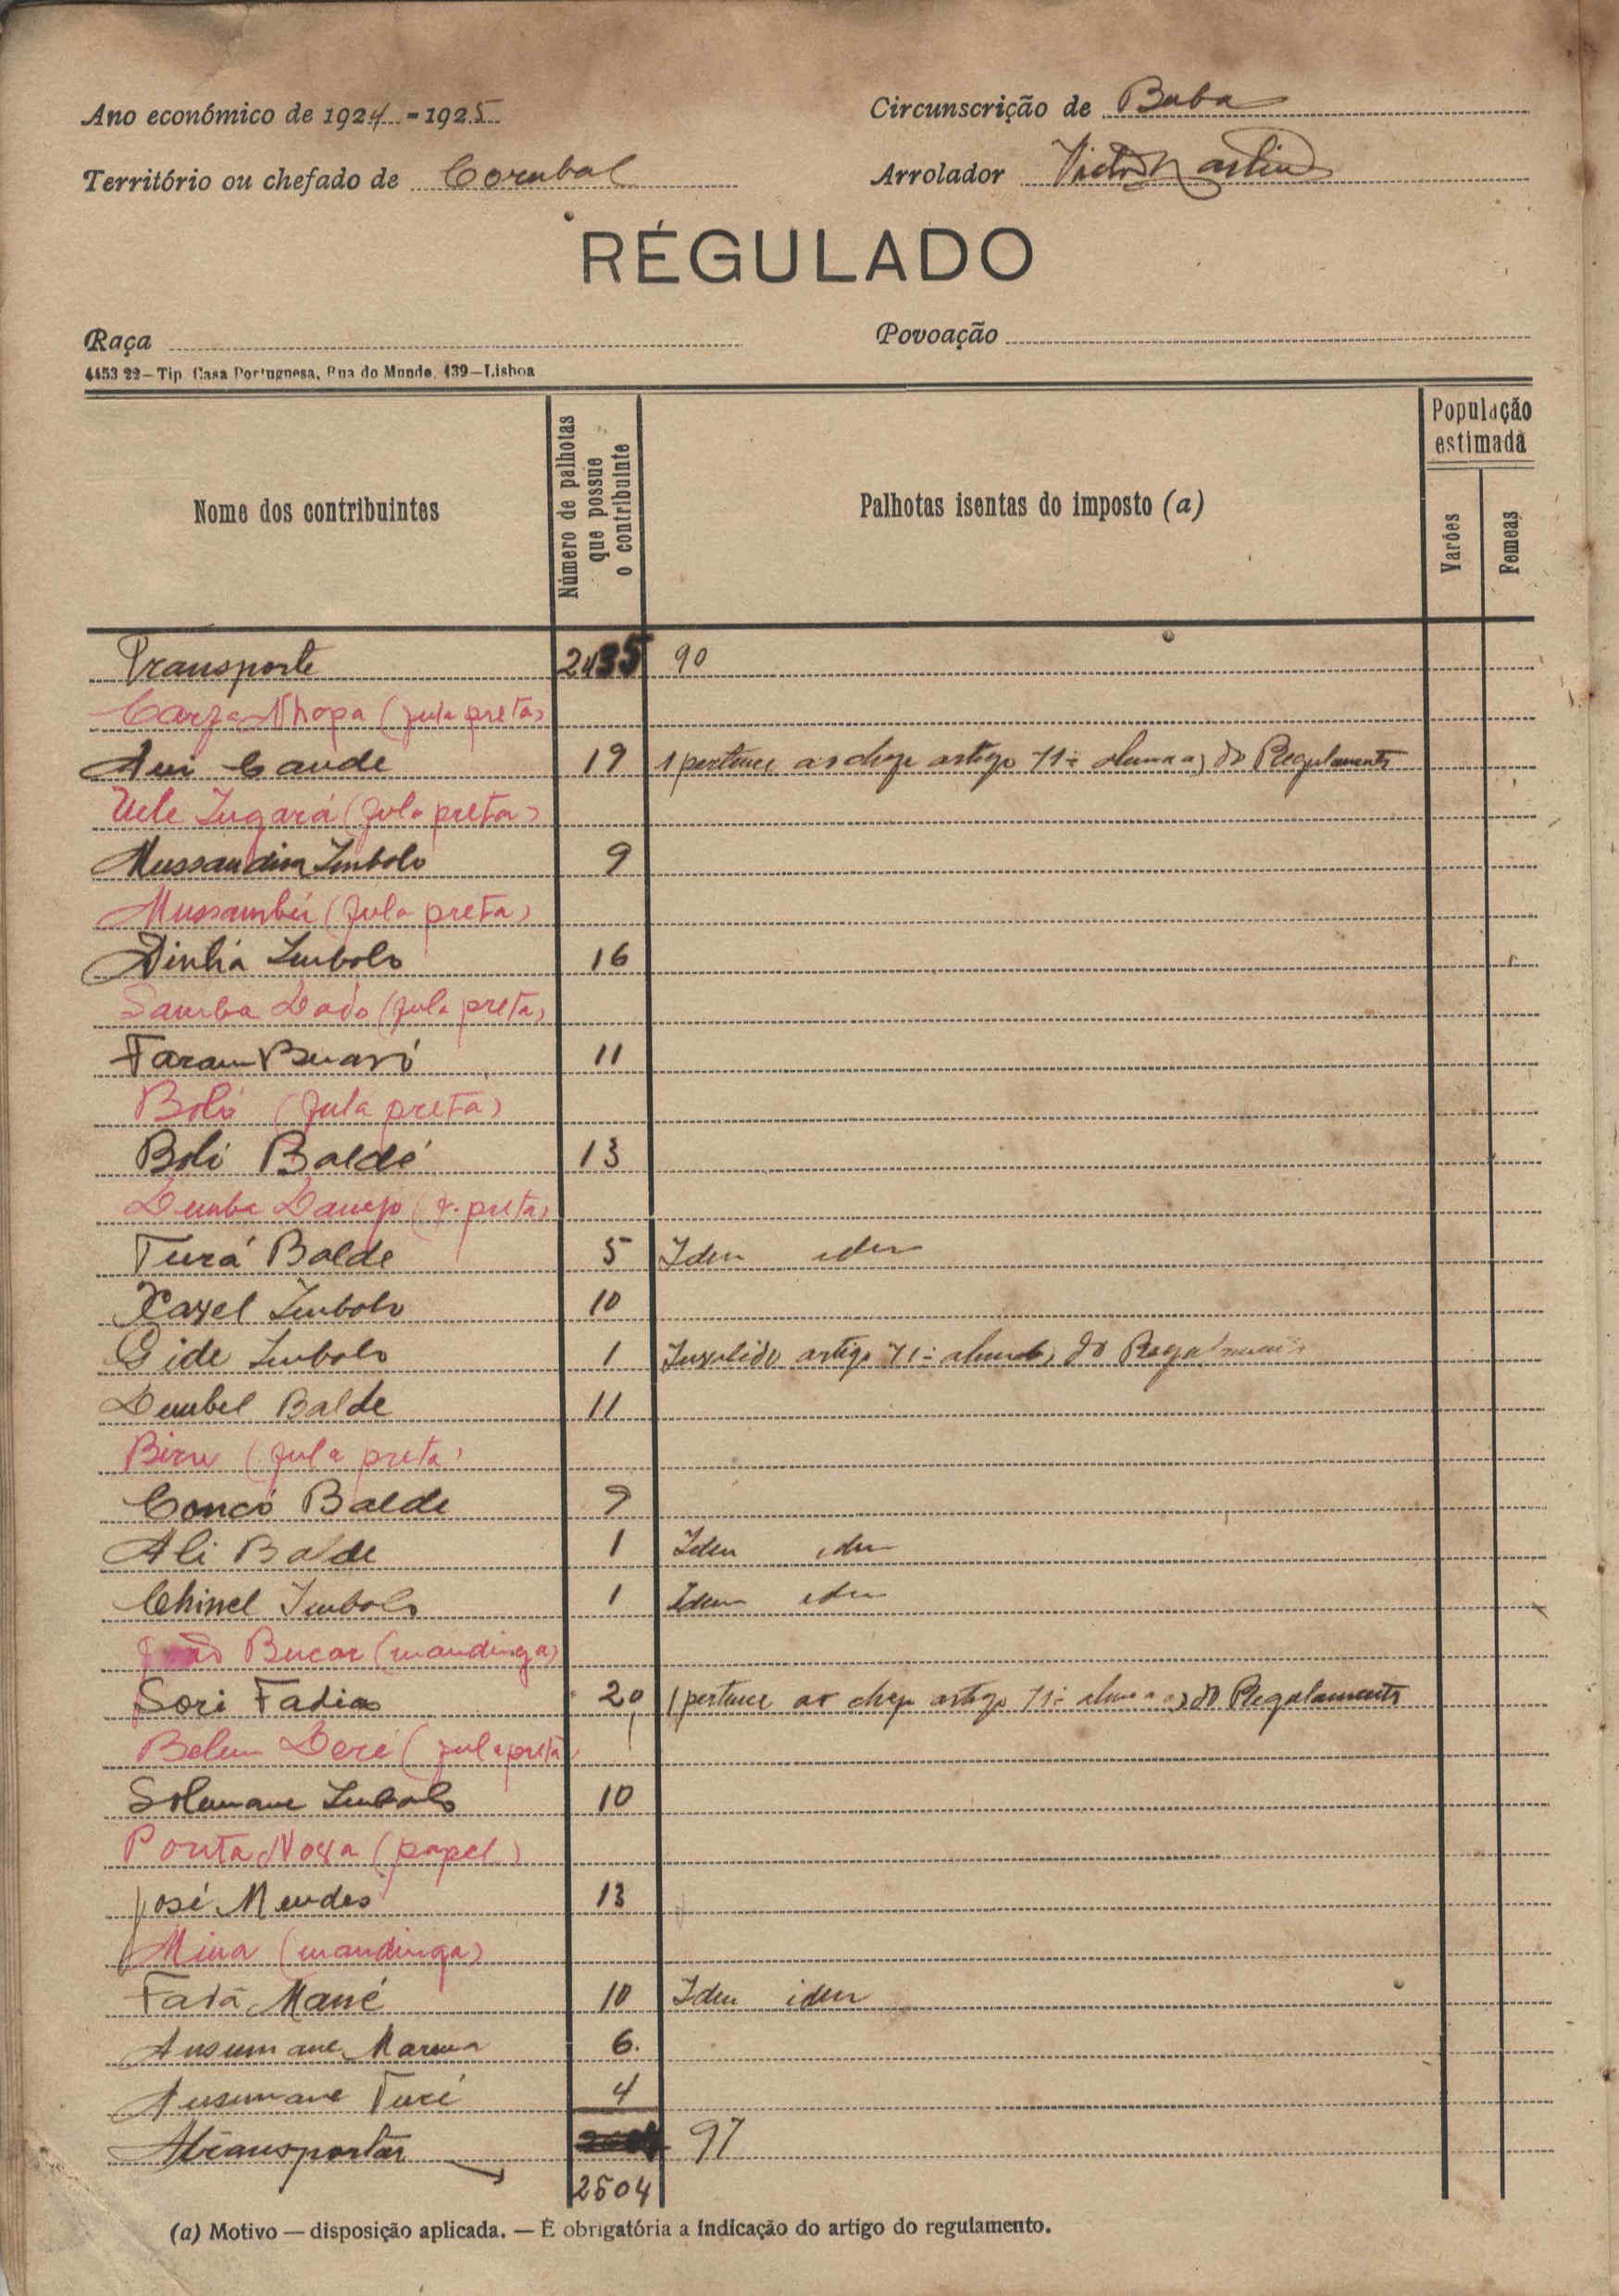 Ano económico de 1924-1925
Circunscrição de Buba
Território ou chefado de Corubal
Arrolador Victor Martins
RÉGULADO
Raça
Povoação
4453 22—Tip. Casa Portuguesa, Rua do Mundo, 139—Lisboa
Nome dos contribuintes
Número de palhotas que possue o contribuinte
Palhotas isentas do imposto (a)
População estimada
Varões
Femeas
Transporte 2435 90
Nhopa (fula preta)
19 1 pertence ao chefe artigo 71º alinea a) do Regulamento
(fula preta)
Mussandim Imbolo 9
Mussambú (fula preta)
Dinhá Imbolo 16
Samba Dado (fula preta)
Faram Buaró 11
Boló (fula preta)
Boli Baldé 13
Demba Danejo (f. preta)
Turá Balde 5 Idem idem
Xayel Imbolo 10
Gide Imbolo 1 Invalido artigo 71º alinea b) do Regulamento
Dembel Balde 11
Biru (fula preta)
Concó Balde 9
Ali Balde 1 Idem idem
Chinel Imbolo 1 Idem idem
Bucar (mandinga)
Sori Fadia 20 1 pertence ao chefe artigo 71º alinea a) do Regulamento
Belem Deré (fula preta)
Solumane Imbolo 10
Ponta Nova (papel)
José Mendes 13
Mina (mandinga)
Fatá Mané 10 Idem idem
Ansumane Marena 6.
Ansumane Turé 4
A transportar 97
2604
(a) Motivo — disposição aplicada. — É obrigatória a indicação do artigo do regulamento.